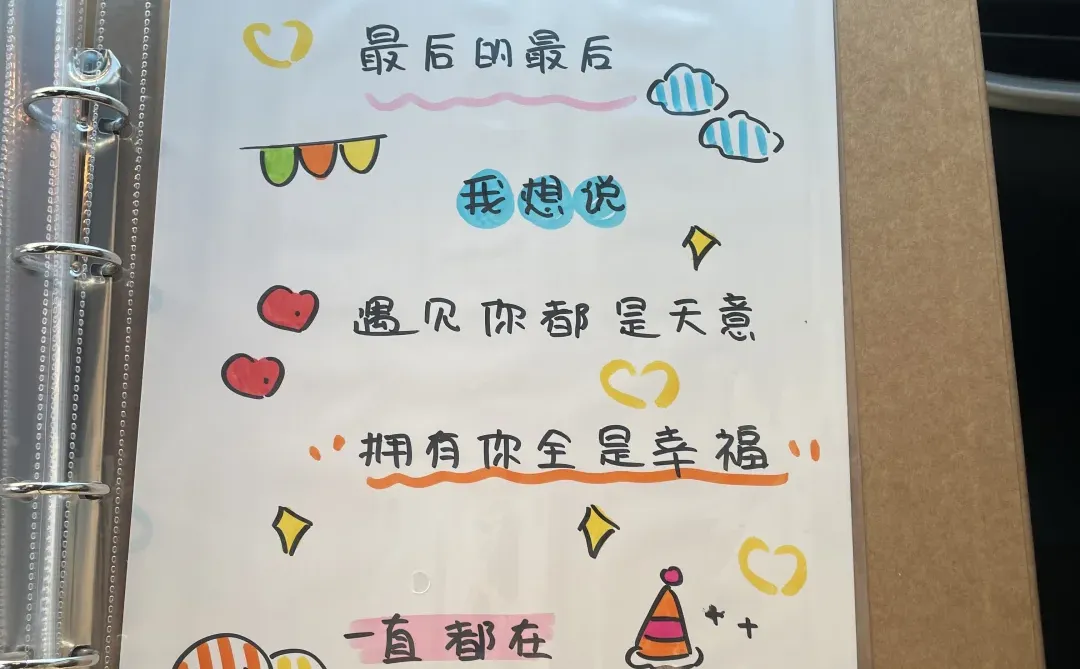 最后的最后
我想说
遇见你都是天意
拥有你全是幸福
一直都在